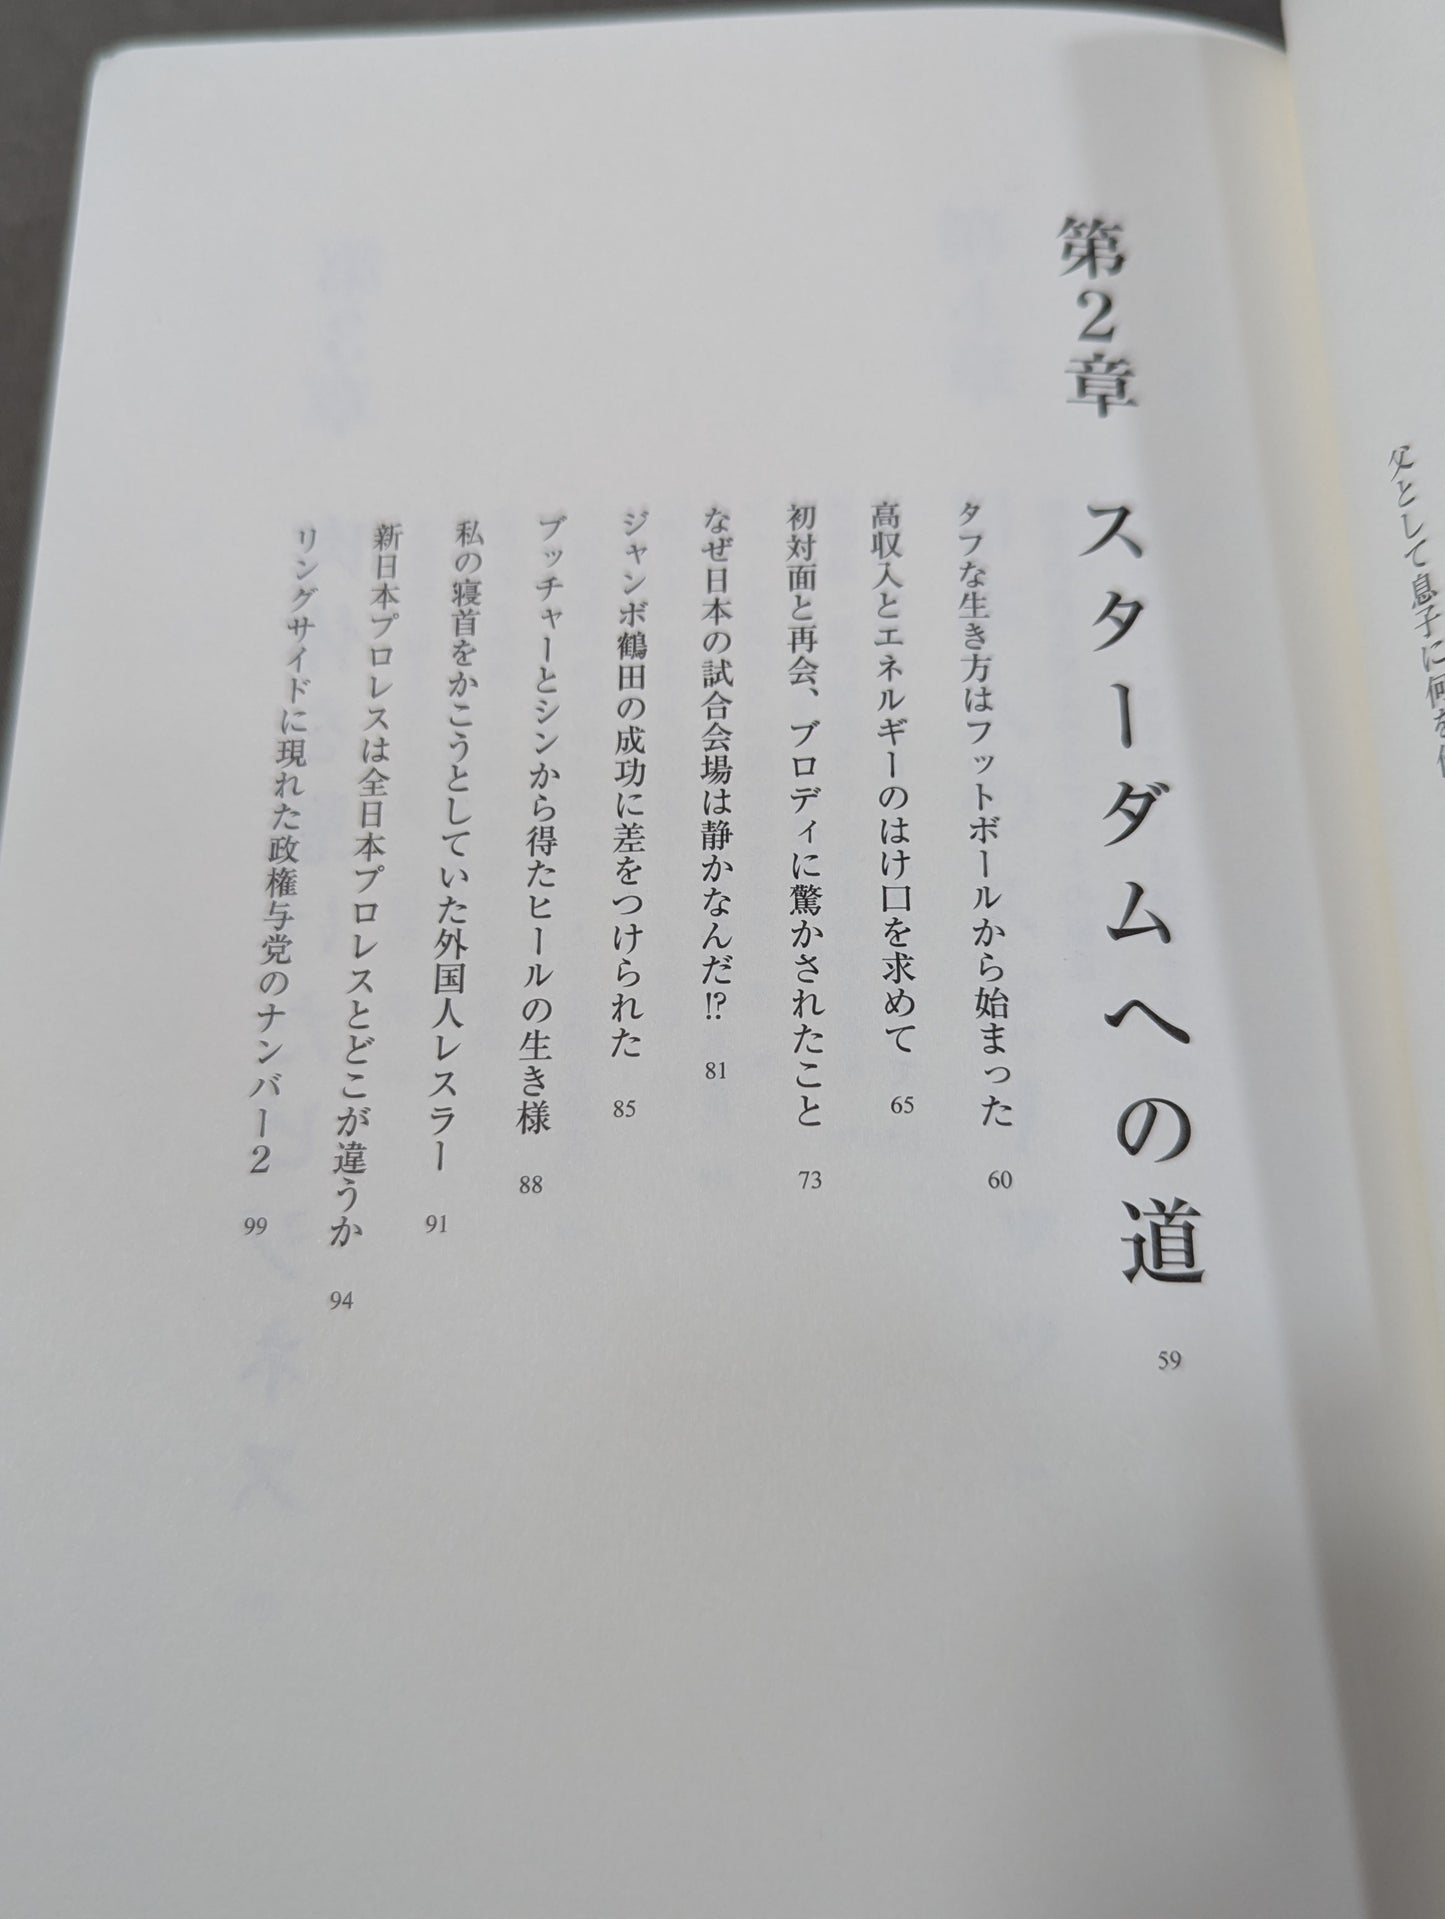 父として息子に何を
第2章 スターダムへの道 59
タフな生き方はフットボールから始まった 60
高収入とエネルギーのはけ口を求めて 65
初対面と再会、ブロディに驚かされたこと 73
なぜ日本の試合会場は静かなんだ!? 81
ジャンボ鶴田の成功に差をつけられた 85
ブッチャーとシンから得たヒールの生き様 88
私の寝首をかこうとしていた外国人レスラー 91
新日本プロレスは全日本プロレスとどこが違うか 94
リングサイドに現れた政権与党のナンバー2 99